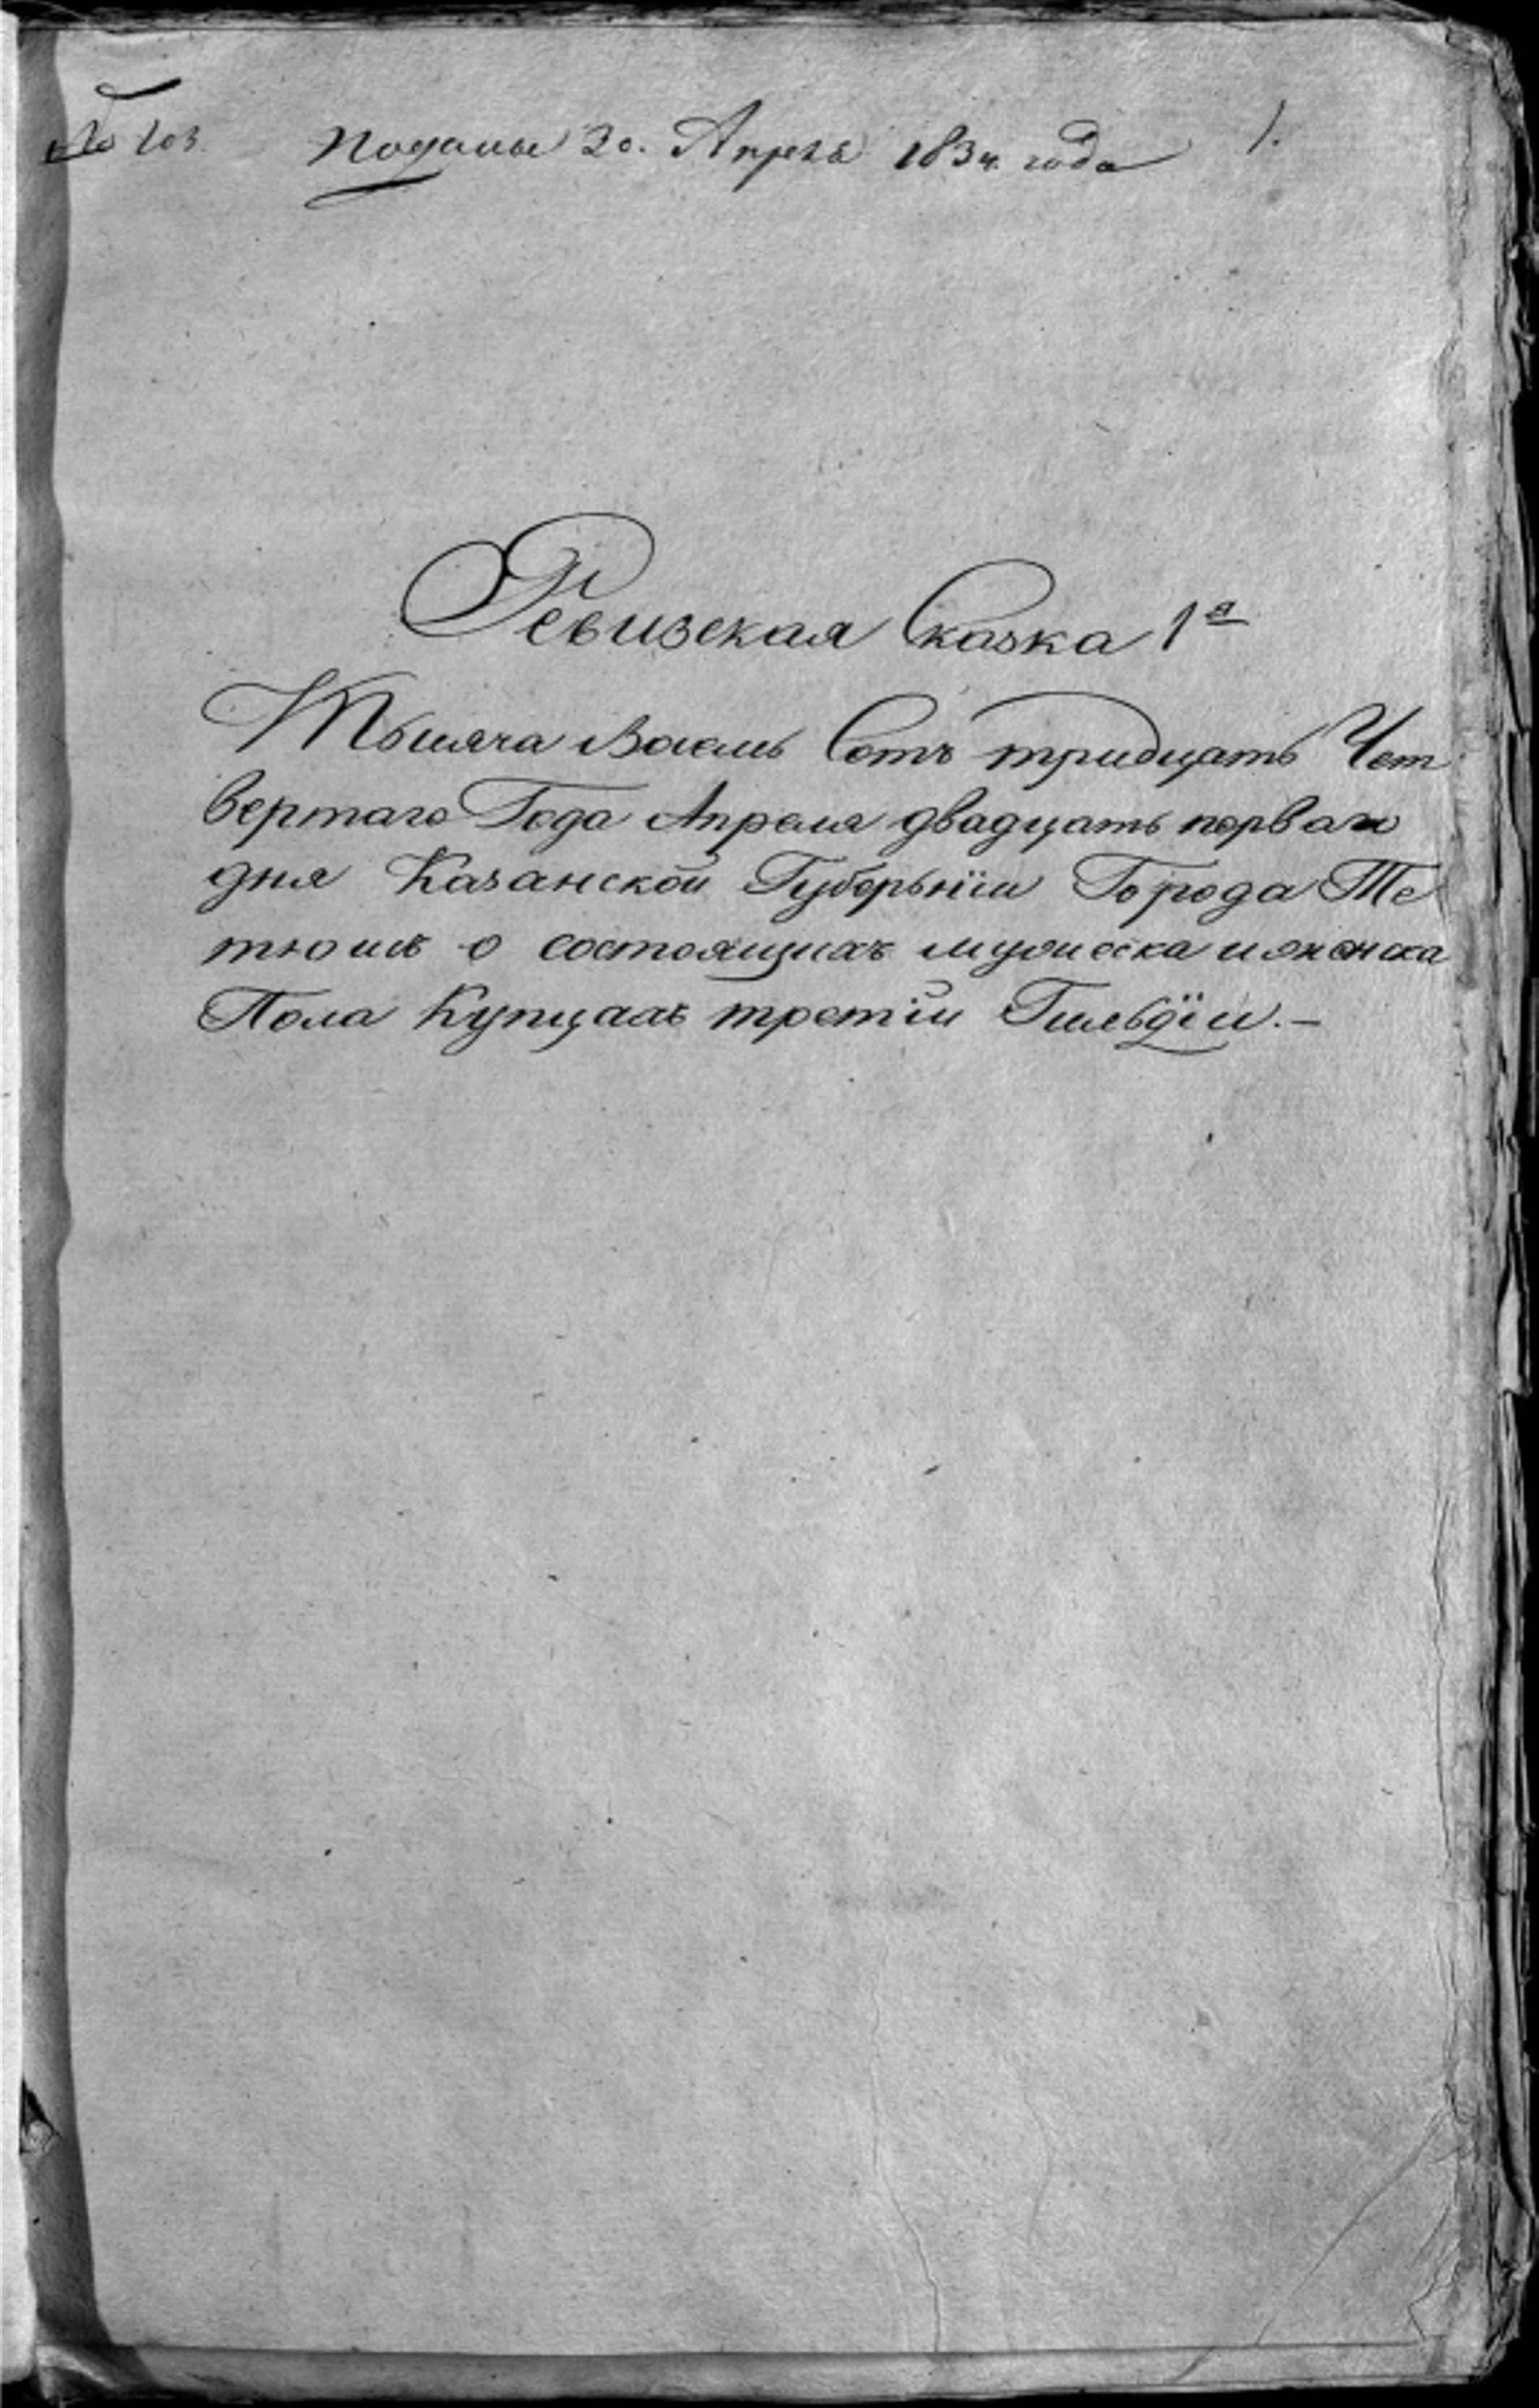 № 103. Поданы 30. Апреля 1834. года 1.
Ревизская Сказка 1я
Тысяча Восемь Сотъ тридцать Чет
вертаго Года Апреля двадцать перваго
дня Казанской Губерьнїи Города Те
тюшь о состоящихъ мужеска и женска
Пола Купцахъ третїй Гильдїи.–